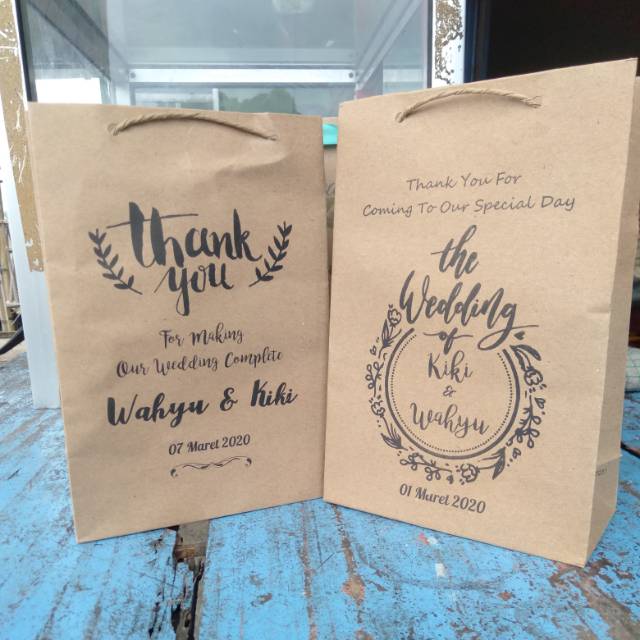 thank
you
For Making
Our Wedding Complete
Wahyu & Kiki
07 Maret 2020
Thank You For
Coming To Our Special Day
the
Wedding
of
Kiki
&
Wahyu
01 Maret 2020